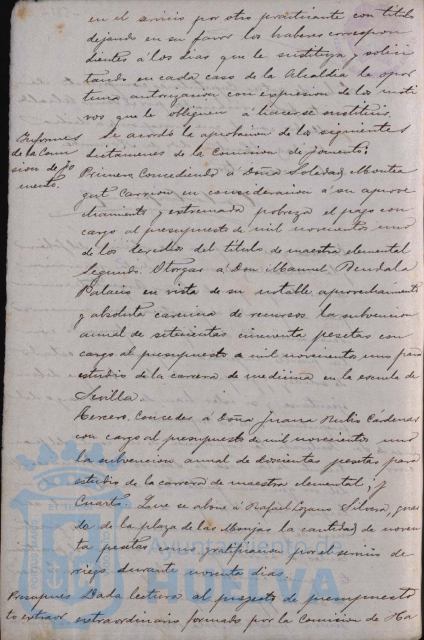 en el servicio por otro practicante con titulo
dejando en su favor los haberes correspon
dientes á los dias que le sustituya y solici
tando en cada caso de la Alcaldia la opor
tuna autorizacion con expresion de los moti
vos que le obliguen a hacerse sustituir.
Informes de la Comision de Fomento.
Se acordó la aprobacion de los siguientes
dictamenes de la Comision de Fomento:
Primero. Concediendo á Doña Soledad Montea
gut Carrion en consideracion á su aprove
chamiento y extremada pobreza el pago con
cargo al presupuesto de mil novecientos uno
de los derechos del titulo de maestra elemental
Segundo. Otorgar á Don Manuel Rendala
Palacio en vista de su notable aprovechamiento
y absoluta carencia de recursos la subvencion
anual de setecientas cincuenta pesetas con
cargo al presupuesto de mil novecientos uno para
estudio de la carrera de medicina en la escuela de
Sevilla.
Tercero. Conceder á Doña Juana Rubio Cárdenas
con cargo al presupuesto de mil novecientos uno
la subvencion anual de doscientas pesetas para
estudio de la carrera de maestra elemental; y
Cuarto. Que se abone á Rafael Lozano Silvera, guar
da de la plaza de las Monjas la cantidad de noven
ta pesetas como gratificacion por el servicio de
riego durante noventa dias.
Presupues
to extraor
Dada lectura al proyecto de presupuesto
extraordinario formado por la Comision de Ha
Ayuntamiento de
HUELVA